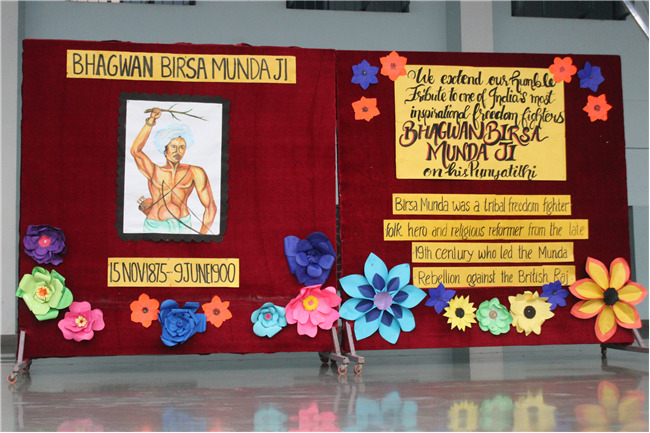 BHAGWAN BIRSA MUNDA JI
15 NOV 1875 - 9 JUNE 1900
We extend our humble
Tribute to one of India's most
inspirational freedom fighters
BHAGWAN BIRSA
MUNDA JI
on his Punyatithi
Birsa Munda was a tribal freedom fighter
folk hero and religious reformer from the late
19th century who led the Munda
Rebellion against the British Raj